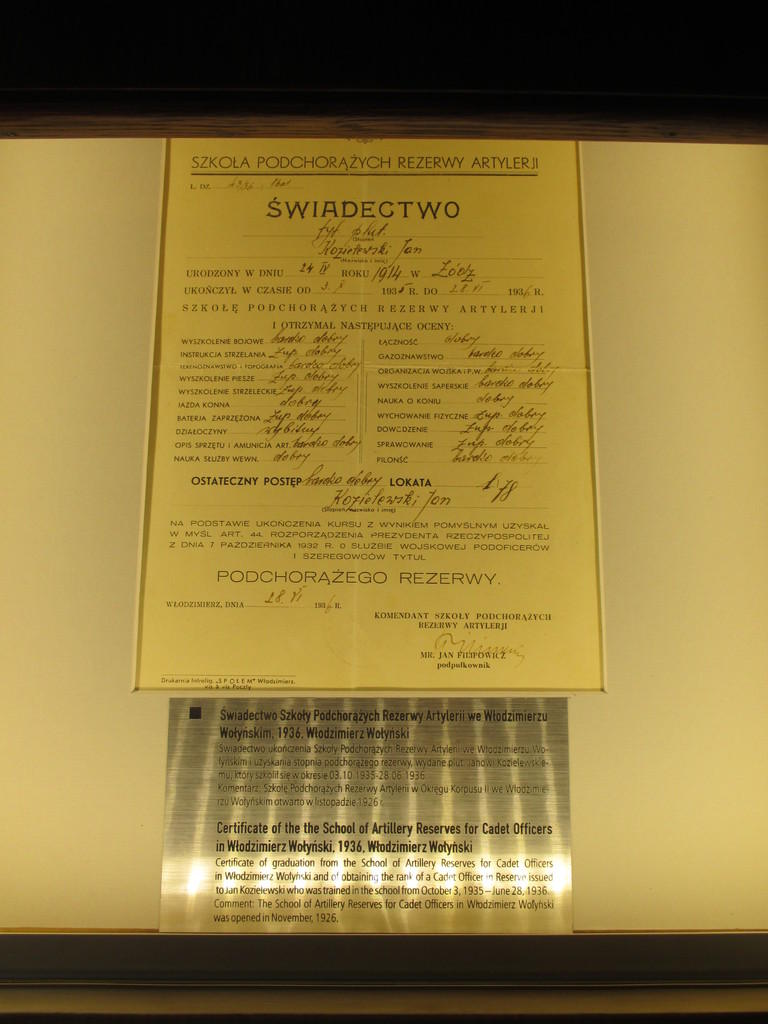 SZKOŁA PODCHORĄŻYCH REZERWY ARTYLERJI
L. DZ.
ŚWIADECTWO
tyt. plut.
(Stopień)
Kozielewski Jan
(Nazwisko i imię)
URODZONY W DNIU 24 IV ROKU 1914 W Łódź
UKOŃCZYŁ W CZASIE OD 3. X 1935 R. DO 28 VI 1936 R.
SZKOŁĘ PODCHORĄŻYCH REZERWY ARTYLERJI
I OTRZYMAŁ NASTĘPUJĄCE OCENY:
WYSZKOLENIE BOJOWE bardzo dobry
INSTRUKCJA STRZELANIA zup. dobry
TERENOZNAWSTWO I TOPOGRAFJA bardzo dobry
WYSZKOLENIE PIESZE zup. dobry
WYSZKOLENIE STRZELECKIE zup. dobry
JAZDA KONNA dobry
BATERJA ZAPRZĘŻONA zup dobry
DZIAŁOCZYNY wybitny
OPIS SPRZĘTU I AMUNICJA ART. bardzo dobry
NAUKA SŁUŻBY WEWN. dobry
ŁĄCZNOŚĆ dobry
GAZOZNAWSTWO bardzo dobry
ORGANIZACJA WOJSKA I P.W.
WYSZKOLENIE SAPERSKIE bardzo dobry
NAUKA O KONIU dobry
WYCHOWANIE FIZYCZNE zup. dobry
DOWODZENIE zup. dobry
SPRAWOWANIE zup. dobry
PILNOŚĆ bardzo dobry
OSTATECZNY POSTĘP bardzo dobry LOKATA 1/78
Kozielewski Jan
(Stopień, nazwisko i imię)
NA PODSTAWIE UKOŃCZENIA KURSU Z WYNIKIEM POMYŚLNYM UZYSKAŁ
W MYŚL ART. 44. ROZPORZĄDZENIA PREZYDENTA RZECZYPOSPOLITEJ
Z DNIA 7 PAŹDZIERNIKA 1932 R. O SŁUŻBIE WOJSKOWEJ PODOFICERÓW
I SZEREGOWCÓW TYTUŁ
PODCHORĄŻEGO REZERWY.
WŁODZIMIERZ, DNIA 28. VI 1936 R.
KOMENDANT SZKOŁY PODCHORĄŻYCH
REZERWY ARTYLERJI
MR. JAN FILIPOWICZ
podpułkownik
Drukarnia Introlig. „SPOŁEM" Włodzimierz.
vis à vis Poczty.
Świadectwo Szkoły Podchorążych Rezerwy Artylerii we Włodzimierzu
Wołyńskim, 1936, Włodzimierz Wołyński
Świadectwo ukończenia Szkoły Podchorążych Rezerwy Artylerii we Włodzimierzu Wo-
łyńskim i uzyskania stopnia podchorążego rezerwy, wydane plut. Janowi Kozielewskie-
mu, który szkolił się w okresie 03.10.1935-28.06.1936.
Komentarz: Szkołę Podchorążych Rezerwy Artylerii w Okręgu Korpusu II we Włodzimie-
rzu Wołyńskim otwarto w listopadzie 1926 r.
Certificate of the the School of Artillery Reserves for Cadet Officers
in Włodzimierz Wołyński, 1936, Włodzimierz Wołyński
Certificate of graduation from the School of Artillery Reserves for Cadet Officers
in Włodzimierz Wołyński and of obtaining the rank of a Cadet Officer in Reserve issued
to Jan Kozielewski who was trained in the school from October 3, 1935 – June 28, 1936.
Comment: The School of Artillery Reserves for Cadet Officers in Włodzimierz Wołyński
was opened in November, 1926.